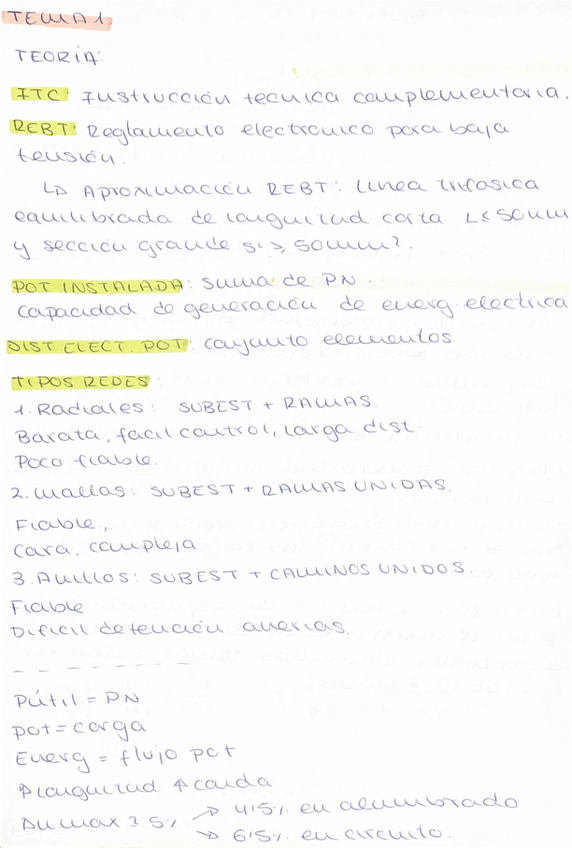 TEMA 1.
TEORÍA:
ITC: Instrucción tecnica complementaria.
REBT: Reglamento electronico para baja
tensión.
↳ Aproximación REBT: linea trifasica
equilibrada de longuitud corta L≤50km
y sección grande s ≥ 50mm².
POT INSTALADA: suma de PN
capacidad de generación de energ electrica
DIST ELECT. POT: conjunto elementos
TIPOS REDES:
1. Radiales: SUBEST + RAMAS.
Barata, facil control, larga dist.
Poco fiable.
2. Mallas: SUBEST + RAMAS UNIDAS.
Fiable,
Cara, compleja
3. Anillos: SUBEST + CAMINOS UNIDOS.
Fiable
Dificil detención averias.
Pútil = PN
pot = carga
Energ = flujo pot
↑longuitud ↑caida
Δu max 5% → 4'5% en alumbrado
→ 6'5% en circuito.